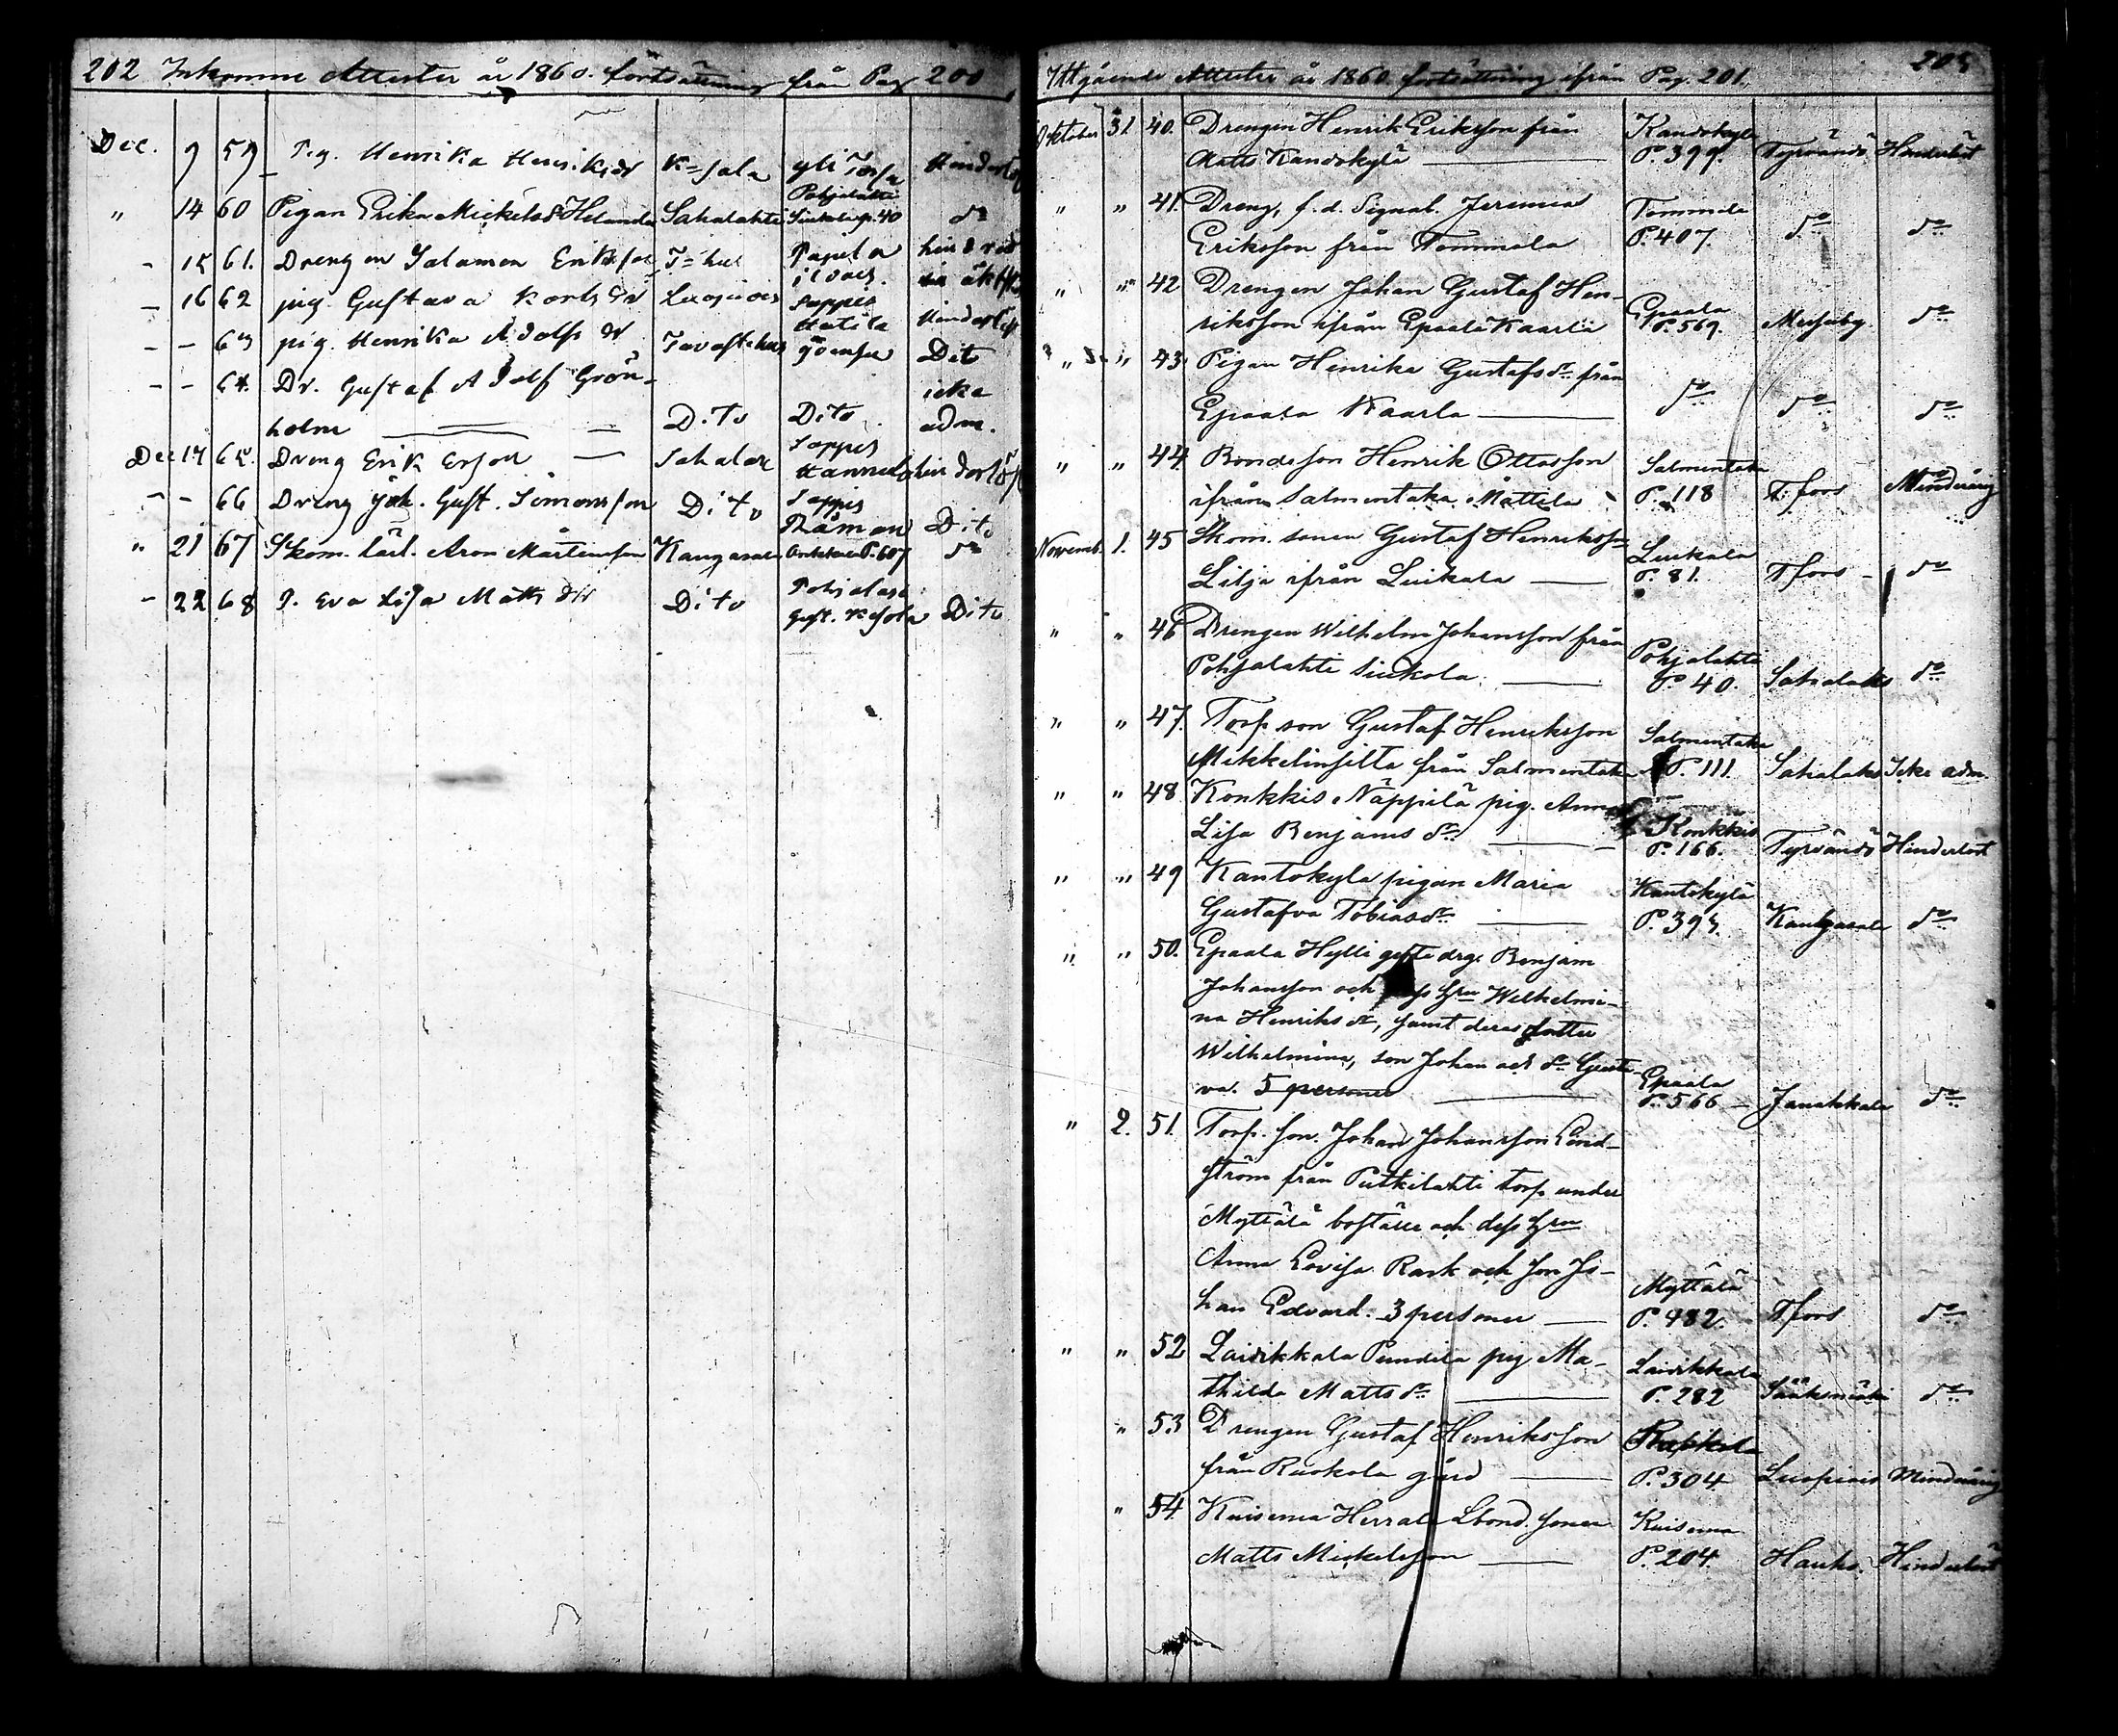 202 Inkomne Attester år 1860. fortsättning från Pag 200
Dec. 9 59 Pig. Henrika Henriksdr K=sala yli Hinderlös
" 14 60 Pigan Erika Mickelsdr Helander Sahalahti Pohjalahti Siukola p. 40 do
- 15 61. Drengen Salamon Eriksson T=hus
- 16 62 pig. Gustava Karlsdr Luopiois Sappee Hinderlös
- - 63 pig. Henrika Adolfsdr Tavasthus Dito
- - 64. Dr. Gustaf Adolf Grön-
holm Dito Dito icke adm.
Dec 17 65. Dreng Erik Ersson Sahalax Sappee Hannula hinderlös
- - 66 Dreng Joh. Gust. Simonsson Dito Sappee Dito
" 21 67 Skom. lärl. Aron Mårtensson Kangasala P. 607 do
- 22 68 P. Eva Lisa Matts dr Dito Pohjalax Gust. Dito
203
Utgående Attester år 1860. fortsättning ifrån Pag. 201.
Oktober 31 40. Drengen Henrik Eriksson från
Matts Kandokylä Kandokylä P. 399. Tyrvändö Hinderlöst
" " 41. Dreng, f.d. Signal. Jeremia
Eriksson från Tommola Tommila P. 407. do do
" " 42 Drengen Johan Gustaf Hen-
riksson ifrån Epaala Kaarla Epaala P. 569. Messuby do
" " 43 Pigan Henrika Gustafsdr från
Epaala Kaarla do do do
" " 44 Bondeson Henrik Ottosson
ifrån Salmentaka Mattila Salmentaka P. 118 T:fors Minderårig
Novemb. 1. 45 Skom. sonen Gustaf Henriksson
Lilja ifrån Luikala Luikala P. 81. T.fors do
" " 46 Drengen Wilhelm Johansson från
Pohjalahti Siukola Pohjalahti P. 40. Sahalaks do
" " 47. Torp. son Gustaf Henriksson
Mikkelinsilta från Salmentaka Salmentaka P. 111. Sahalaks Icke adm.
" " 48 Konkkis Näppilä pig. Anna
Lisa Benjamsdr Konkkis P. 166. Tyrvändö Hinderlöst
" " 49 Kantokyla pigan Maria
Gustafva Tobiasdr Kantokylä P. 393. Kangasala do
" " 50. Epaala Hylli gifte drg. Benjam
Johansson och Hru Wilhelmi-
na Henriksdr, samt deras dotter
Wilhelmina, son Johan och dr Gusta-
va. 5 personer Epaala P. 566 Janakkala do
" 2. 51. Torp. son. Johan Johansson Lind-
ström från Putkilahti torp under
Myttälä boställe och dess Hru
Anna Lovisa Rask och son Jo-
han Edvard. 3 personer Myttälä P. 482. T.fors do
" " 52 Laivikkala Pundila pig Ma-
thilda Matts dr Laivikkala P. 282 Sääksmäki do
" 53 Drengen Gustaf Henriksson
från Ruokola gård P. 304 Luopiois Minderårig
" 54. Kuisema Herrala Lbond. sonen
Matts Mickelsson Kuisema P. 204. Hauho. Hinderlöst